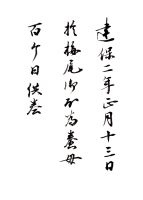 建保二年正月十三日
於栂尾御取為養母
百个日供養